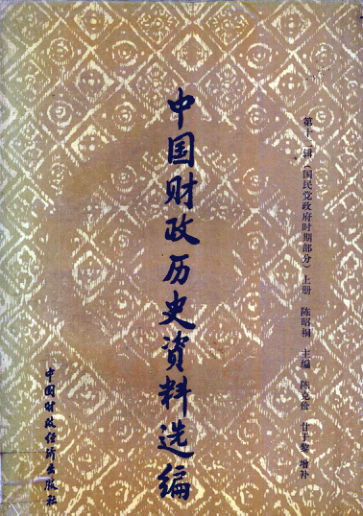 第十二辑（国民党政府时期部分）上册 陈昭桐 主编 陈克俭 甘于黎 增补
中国财政历史资料选编
中国财政经济出版社